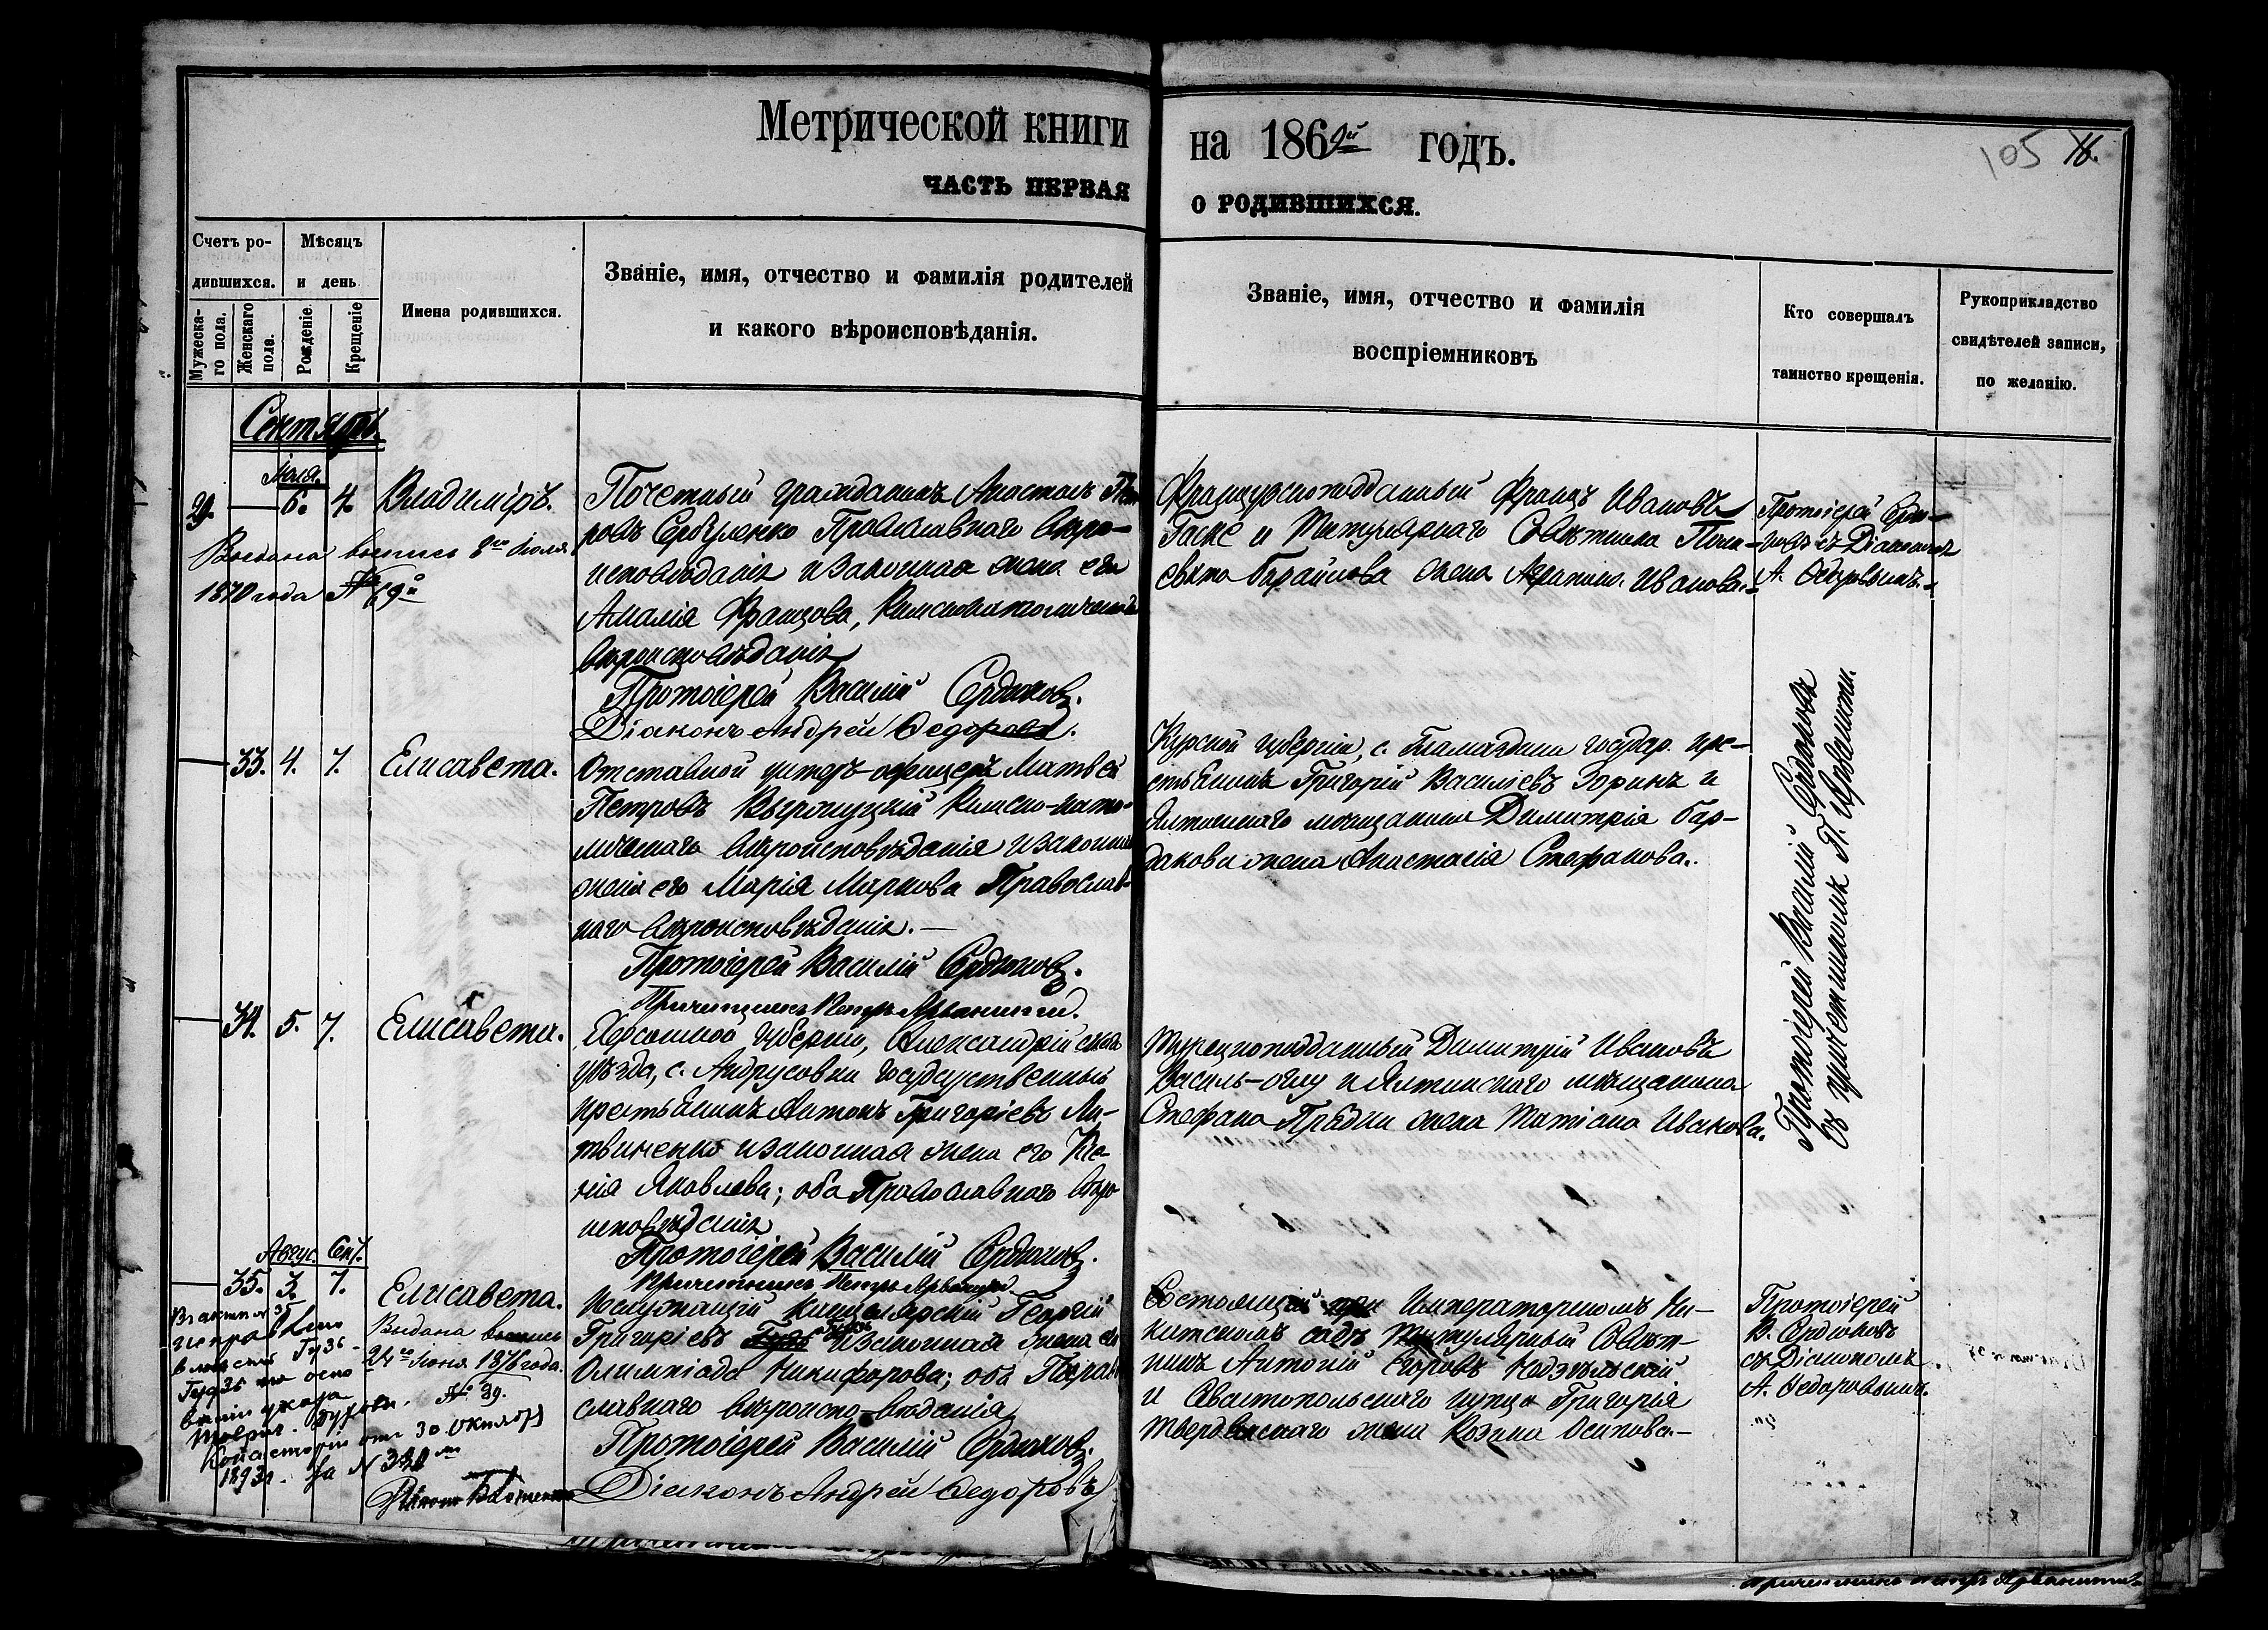 Метрической книги на 1869й годъ.
105
ЧАСТЬ ПЕРВАЯ О РОДИВШИХСЯ.
Счетъ родившихся.
Мужескаго пола.
Женскаго пола.
Мѣсяцъ и день
Рожденіе.
Крещеніе
Имена родившихся.
Званіе, имя, отчество и фамилія родителей
и какого вѣроисповѣданія.
Званіе, имя, отчество и фамилія
воспріемниковъ
Кто совершалъ
таинство крещенія.
Рукоприкладство
свидѣтелей записи,
по желанію.
Сентябрь.
29. — 6. 4. Владиміръ.
Выдана выпись 8го Іюля
1870 года № 69й
Почетный гражданинъ Апостолъ Пет-
ровъ Православнаго вѣро-
исповѣданія и законная жена его
Амалія Францова, Римскокатолическаго
вѣроисповѣданія
Протоіерей Василій Сердюковъ.
Діаконъ Андрей Ѳедоровъ.
Французскоподданный Францъ Ивановъ
Гаске и Титулярнаго Совѣтника
жена Ивановa.
Протоіерей Сердю-
ковъ съ Діакономъ
А. Ѳедоровымъ.
— 33. 4. 7. Елисавета.
Отставной унтеръ-офицеръ Матвей
Петровъ Римско-като-
лическаго вѣроисповѣданія и законная
жена его Марія Маркова Православ-
наго вѣроисповѣданія. —
Протоіерей Василій Сердюковъ.
Причетникъ Петръ Арванити.
Курской губерніи, с. государ. кре-
стьянинъ Григорій Василіевъ Зоринъ и
Ялтинскаго мѣщанина Димитрія Бар-
дакова жена Анастасія Стефанова.
Протоіерей Василій Сердюковъ
съ причетникомъ П. Арванити.
— 34. 5. 7. Елисавета.
Херсонской губерніи, Александрійскаго
уѣзда, с. Андрусовки государственный
крестьянинъ Антонъ Григоріевъ Ли-
твиненко и законная жена его Ксе-
нія Яковлева; оба Православнаго вѣро-
исповѣданія
Протоіерей Василій Сердюковъ.
Причетникъ Петръ Арванити.
Турецкоподданный Димитрій Ивановъ
Василь-оглу и Ялтинскаго мѣщанина
Стефана жена Татіана Иванова.
Авгус. Сент.
— 35. 3. 7. Елисавета.
Выдана выпись
24го Іюня 1876 года.
№ 39.
Служащій Канцелярскій Георгій
Григоріевъ и законная жена его
Олимпіада Никифорова; оба Право-
славнаго вѣроисповѣданія
Протоіерей Василій Сердюковъ.
Діаконъ Андрей Ѳедоровъ
Состоящій при Императорскомъ Ни-
китскомъ саду Титулярный Совѣт-
никъ Антоній Егоровъ
и Севастопольскаго купца Григорія
жена Осипова. —
Протоіерей
В. Сердюковъ
съ Діакономъ
А. Ѳедоровымъ.
исправлено
вмѣсто
Гудзь на осно-
ваніи указа
Таврич. Духовн.
Консисторіи отъ 30 Октября
1893 г. за №
Причетникъ Петръ Арванити